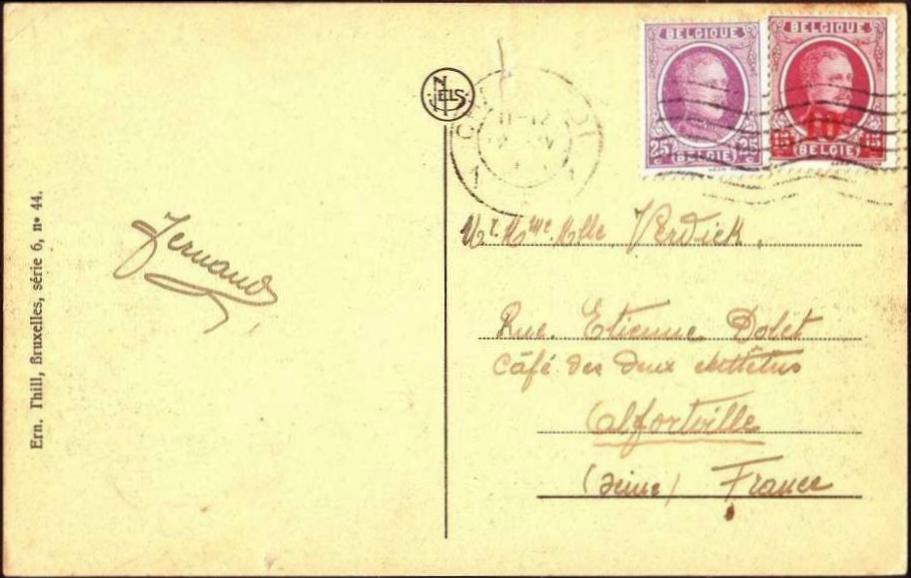 Ern. Thill, Bruxelles, série 6, nº 44.
Fernand
NELS
BELGIQUE
25c 25c
(BELGIE)
BELGIQUE
10c
15 15
(BELGIE)
11-12
1 1
Mr. Mme. Mlle. Verdick.
Rue. Etienne Dolet
Câfé des deux
Alfortville
(Seine) France